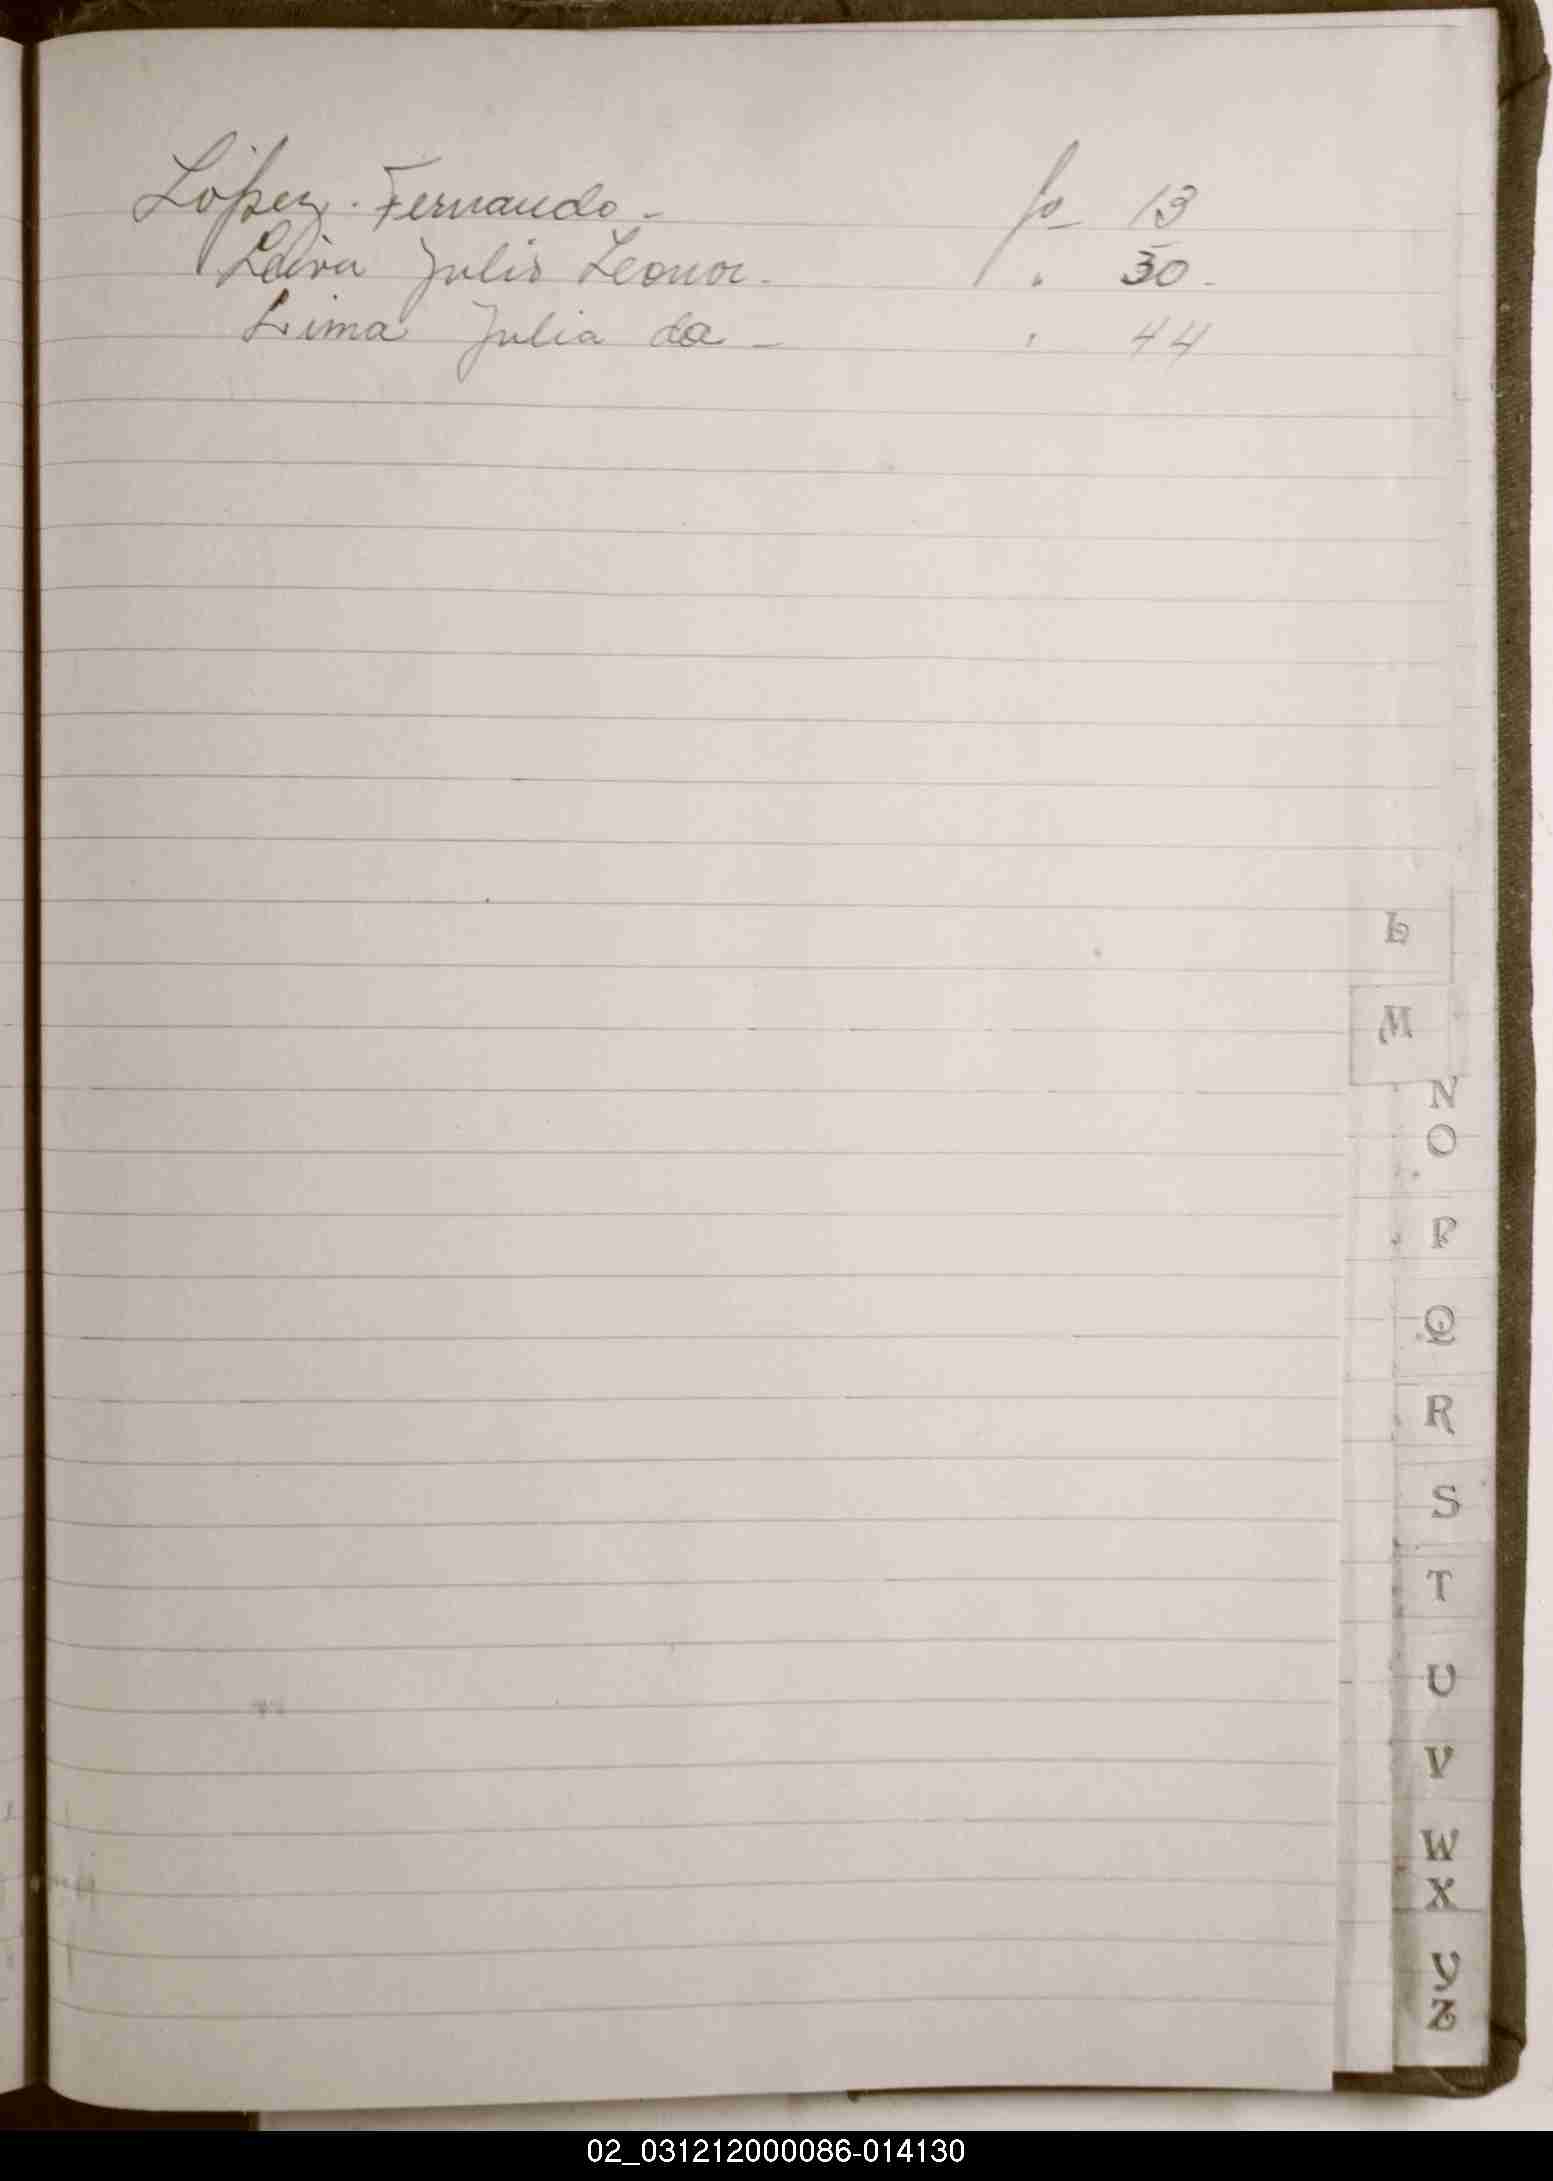 López. Fernando - fo 13
Leiva Julio Leonor. " 30.
Lima Julia da - " 44
L
M
N
O
P
Q
R
S
T
U
V
W
X
Y
Z
02_031212000086-014130